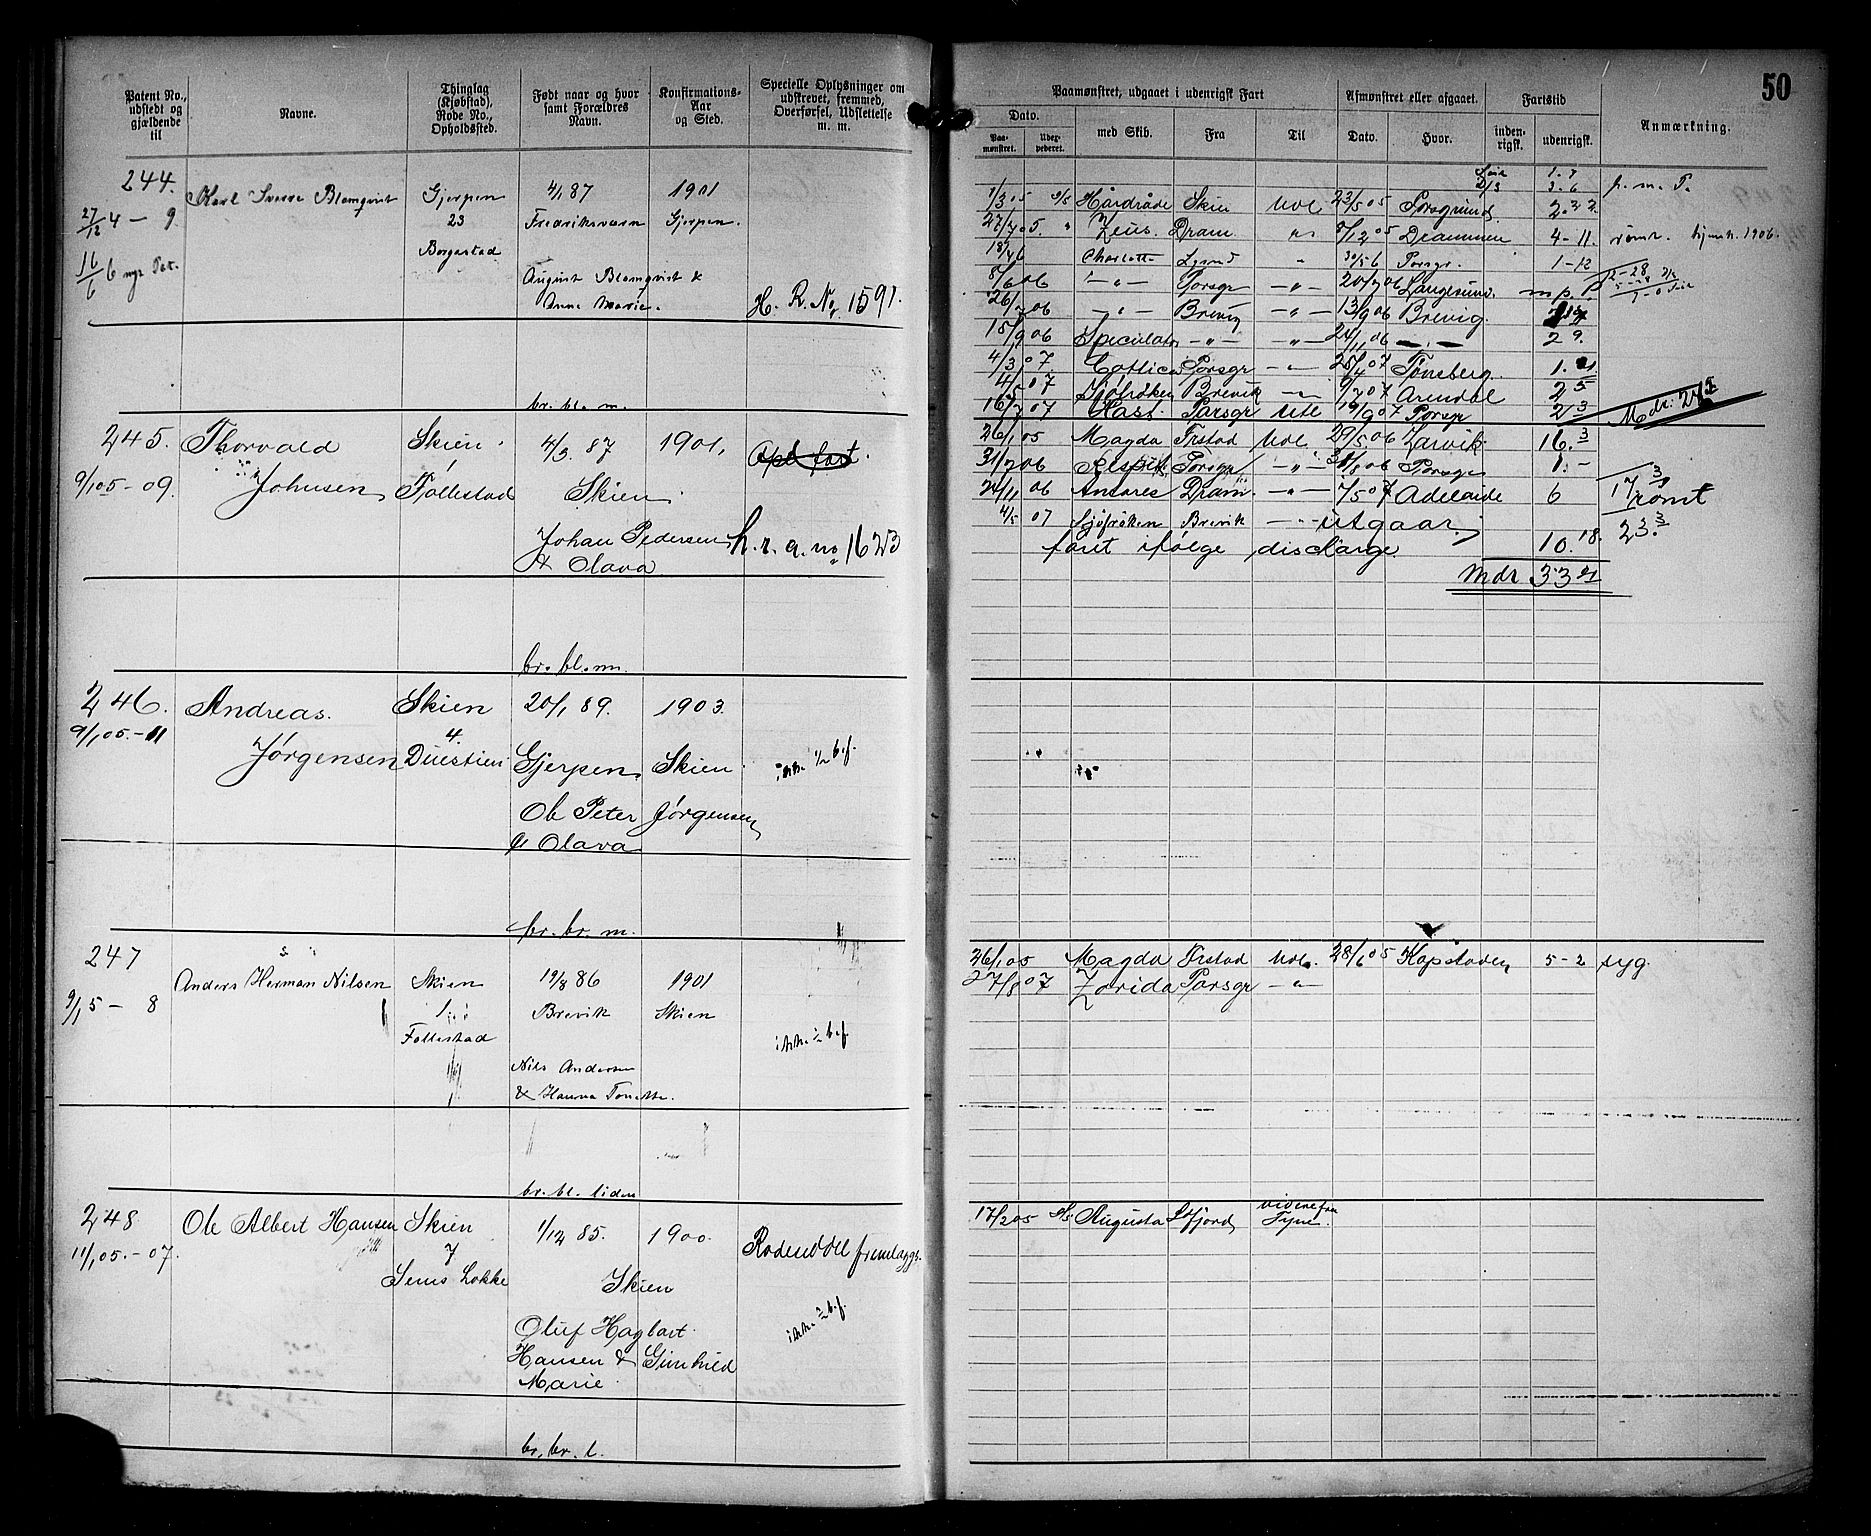 50
Patent No., udstedt og gjældende til
Navne.
Thinglag (Kjøbstad), Rode No., Opholdssted.
Født naar og hvor samt Forældres Navn.
Konfirmations-Aar og Sted.
Specielle Oplysninger om udskrevet, fremmed, Overførsel, Udslettelse m. m.
Paamønstret, udgaaet i udenrigsk Fart
Afmønstret eller afgaaet.
Fartstid
Anmærkning.
Dato.
Paa-mønstret.
Udex-pederet.
med Skib.
Fra
Til
Dato.
Hvor.
inden-rigsk.
udenrigsk.
244.
Karl Sverre Blomqvist
Gjerpen
4/1 87
1901
27/12 4 - 9.
23
Fredriksværn
Gjerpen.
16/6 6 nyt Pat.
Borgestad
August Blomqvist &
Anna Marie.
H. R. No 1591.
br. bl. m.
1/3 05 Hårdråde Skien Udl 23/5 05 Porsgrund. 2.22
27/7 05. Zeus. Dram 8/12 05 Drammen 4-11. rømt. hjemk. 1906.
18/4 6 Charlotte 30/5 6 Porsgr. 1-12
8/6 06 -"- Porsgr -"- 20/7 06 Langesund. m p.
26/7 06 -"- Brevig -"- 13/9 06 Brevig.
15/9 06 Speculator -"- -"- 24/11 06 -"- 2 9.
4/3 07. Gottlieb Porsgr -"- 25/4 07 Tønsberg. 1.21
4/5 07 Sjöfröken Brevik -"- 9/7 07 Arendal 2 5
16/7 07 Hast. Porsgr Udl 19/9 07 Porsgr 2 3
245.
Thorvald
Johnsen
Skien
4/3 87
1901.
Opl. fart.
9/1 05 - 09.
Follestad
Skien
Johan Pedersen
& Olava
h. r. a. no 1623
br. bl. m.
26/1 05 Magda Frstad Udl 29/5 06 Larvik 16.3
31/7 06 Porsgr -"- 31/8 06 Porsgr 1.-
24/11 06 Antares Dram -"- 7/5 07 Adelaide 6 rømt
17 3
4/5 07 Sjöfröken Brevik -"- utgaar
23.3
forit ifølge discharge 10.18.
Mdr 33 21
246.
Andreas.
Jørgensen
Skien
20/1 89.
1903.
9/1 05. - 11
4.
Duestien
Gjerpen
Skien
ikke 1/2 b.f.
Ole Peter Jørgensen
& Olava
br. br. m.
247
Anders Herman Nilsen
Skien
19/8 86
1901
9/1 5 - 8
1.
Brevik
Skien
Follestad
ikke 1/2 b.f.
Nils Andersen
& Hanna Tonette.
br. bl. liden
26/1 05 Magda Frstad Udl. 28/6 05 Kapstaden 5-2 syg.
27/8 07 Zorida Porsgr -"-
248
Ole Albert Hansen
Skien
1/12 85.
1900.
11/1 05. - 07.
7
Skien
Rodeseddel fremlægges.
ikke 1/2 b.f.
Oluf Hagbart
Hansen & Gunhild
Marie
br. br. l.
17/2 05 S/S Augusta S fjord videre fra
Tyne.